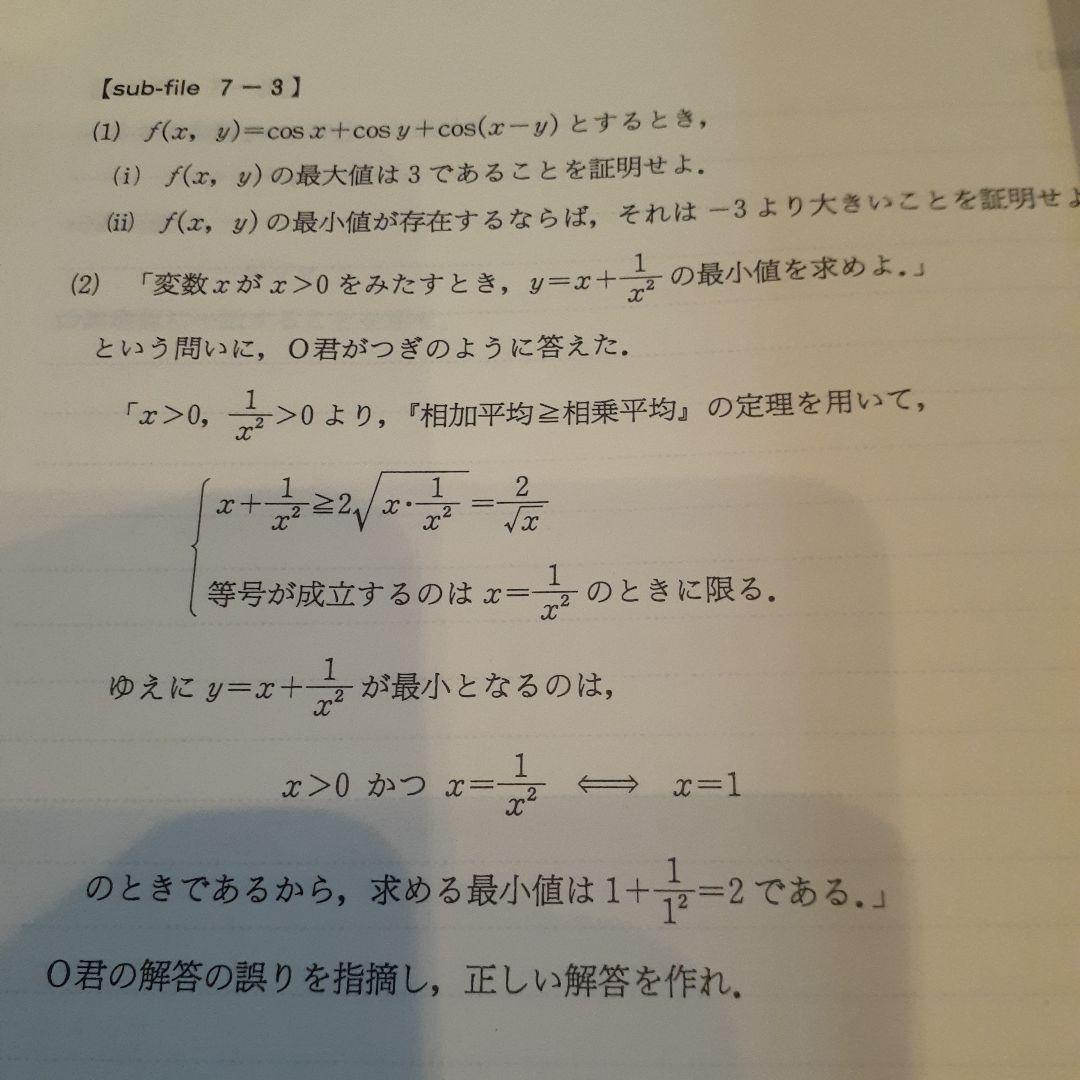 【sub-file 7－3】
(1) f(x, y)=cos x+cos y+cos(x−y) とするとき,
(i) f(x, y) の最大値は 3 であることを証明せよ.
(ii) f(x, y) の最小値が存在するならば, それは −3 より大きいことを証明せよ
(2) 「変数 x が x>0 をみたすとき, y=x+1/x² の最小値を求めよ.」
という問いに, O君がつぎのように答えた.
「x>0, 1/x²>0 より,『相加平均≧相乗平均』の定理を用いて,
x+1/x²≧2√(x·1/x²)=2/√x
等号が成立するのは x=1/x² のときに限る.
ゆえに y=x+1/x² が最小となるのは,
x>0 かつ x=1/x² ⟺ x=1
のときであるから, 求める最小値は 1+1/1²=2 である.」
O君の解答の誤りを指摘し, 正しい解答を作れ.